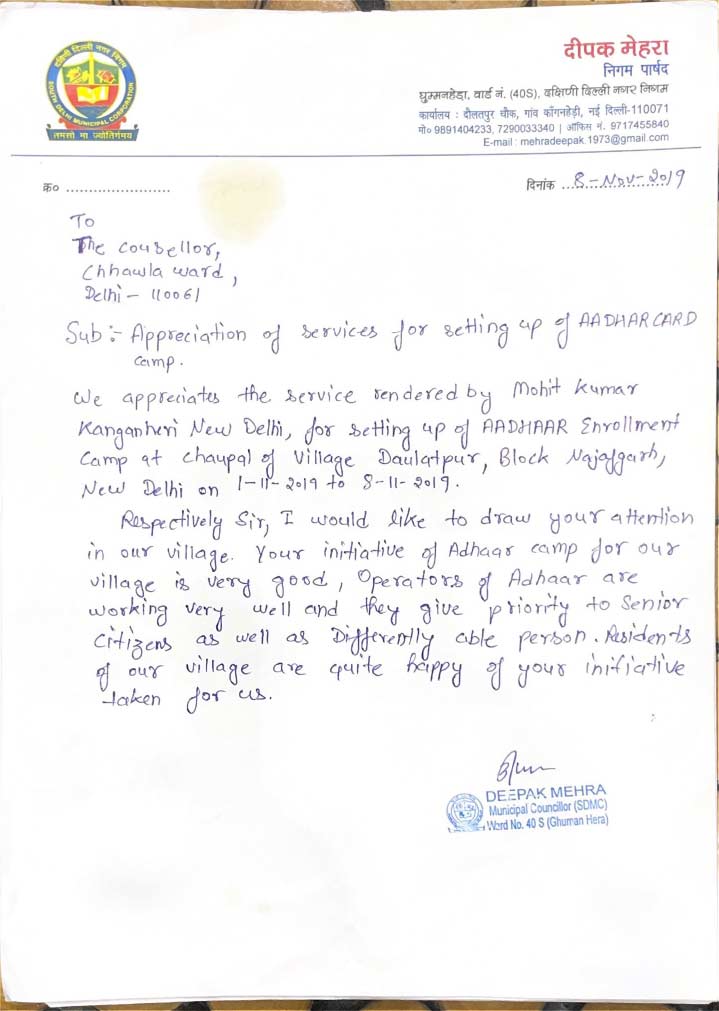 दक्षिणी दिल्ली नगर निगम
SOUTH DELHI MUNICIPAL CORPORATION
तमसो मा ज्योतिर्गमय
दीपक मेहरा
निगम पार्षद
घुम्मनहेड़ा, वार्ड नं. (40S), दक्षिणी दिल्ली नगर निगम
कार्यालय : दौलतपुर चौक, गांव काँगनहेड़ी, नई दिल्ली-110071
मो० 9891404233, 7290033340 | ऑफिस नं. 9717455840
E-mail : mehradeepak.1973@gmail.com
क्र० .......................
दिनांक 8-Nov-2019
To
The Cousellor,
Chhawla ward,
Delhi - 110061
Sub :- Appreciation of services for setting up of AADHAR CARD
camp.
We appreciates the service rendered by Mohit Kumar
Kanganheri New Delhi, for setting up of AADHAAR Enrollment
Camp at chaupal of Village Daulatpur, Block Najafgarh,
New Delhi on 1-11-2019 to 8-11-2019.
Respectively Sir, I would like to draw your attention
in our village. Your initiative of Adhaar camp for our
village is very good, Operators of Adhaar are
working very well and they give priority to Senior
Citizens as well as Differently able person. Residents
of our village are quite happy of your initiative
taken for us.
DEEPAK MEHRA
Municipal Councillor (SDMC)
Ward No. 40 S (Ghuman Hera)